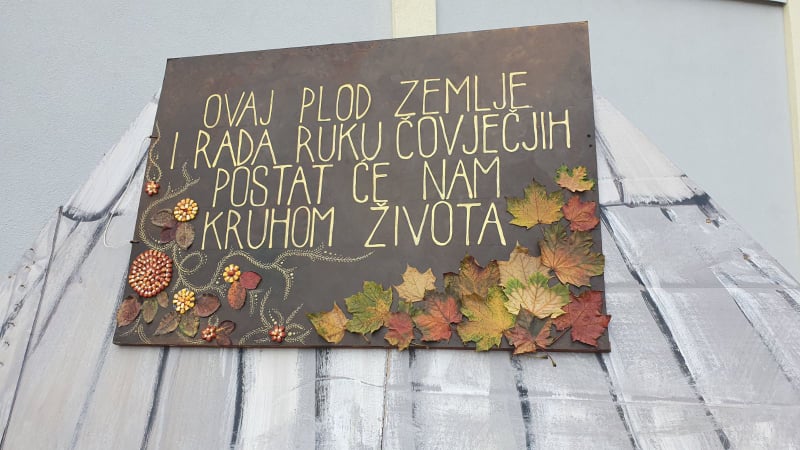 OVAJ PLOD ZEMLJE
I RADA RUKU ČOVJEČJIH
POSTAT ĆE NAM
KRUHOM ŽIVOTA